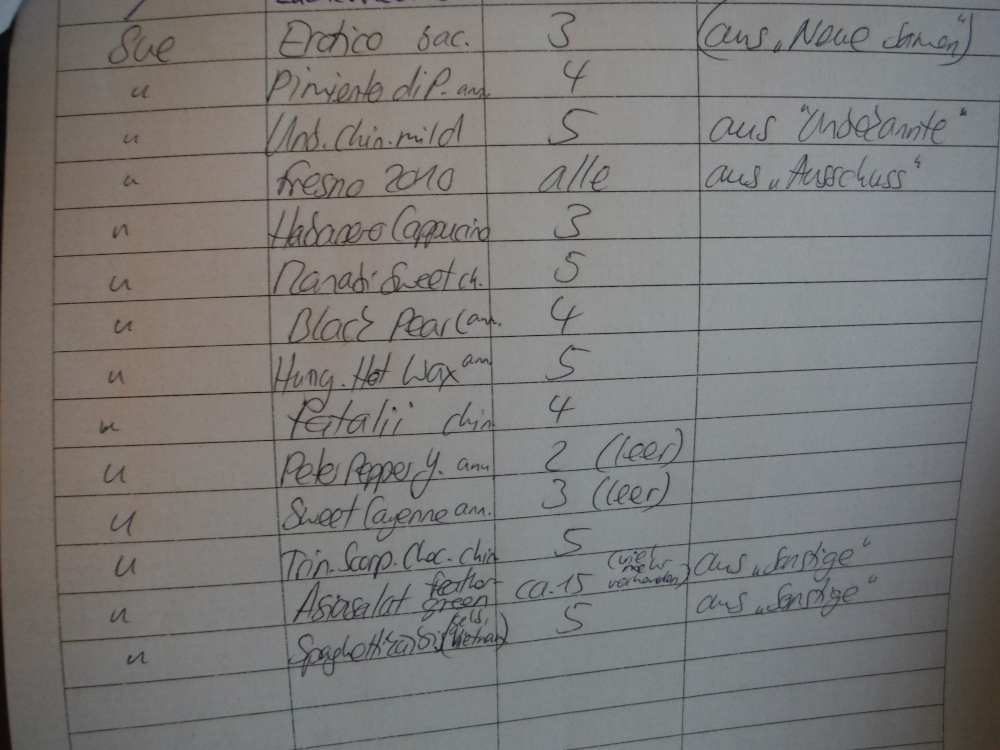 Sue Erotico bac. 3 (aus „Neue Samen“)
" Pimiento di P. ann. 4
" Unb. Chin. mild 5 aus "Unbekannte"
" Fresno 2010 alle aus „Ausschuss“
" Habanero Cappucino 3
" Manabi Sweet ch. 5
" Black Pearl ann. 4
" Hung. Hot Wax ann 5
" Fatalii chin 4
" Peter Pepper y. ann 2 (leer)
" Sweet Cayenne ann. 3 (leer)
" Trin. Scorp. Choc. chin 5
" Asiasalat feather green ca. 15 (viel mehr vorhanden) aus „Sonstige“
" Spaghettikürbis (gelb, Vietnam) 5 aus „Sonstige“